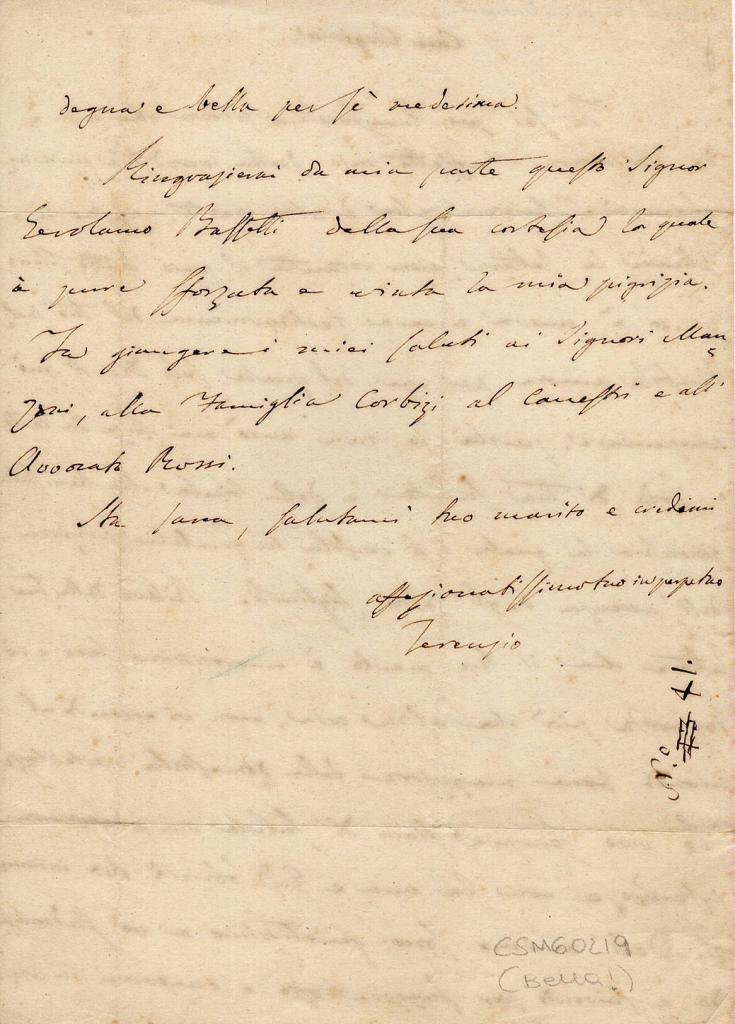 degna e bella per sè medesima.
Ringraziemi da mia parte questo Signor
Gerolamo Baffetti della sua cortesia la quale
à pure sforzata e vinta la mia pigrizia.
Fa giungere i miei saluti ai Signori Man
zoni, alla Famiglia Corbizi al Canestri e all'
Avvocato Rossi.
Sta sana, salutami tuo marito e credimi
affezionatissimo tuo in perpetuo
Terenzio
N.o 41.
CSM60219
(Bella!)